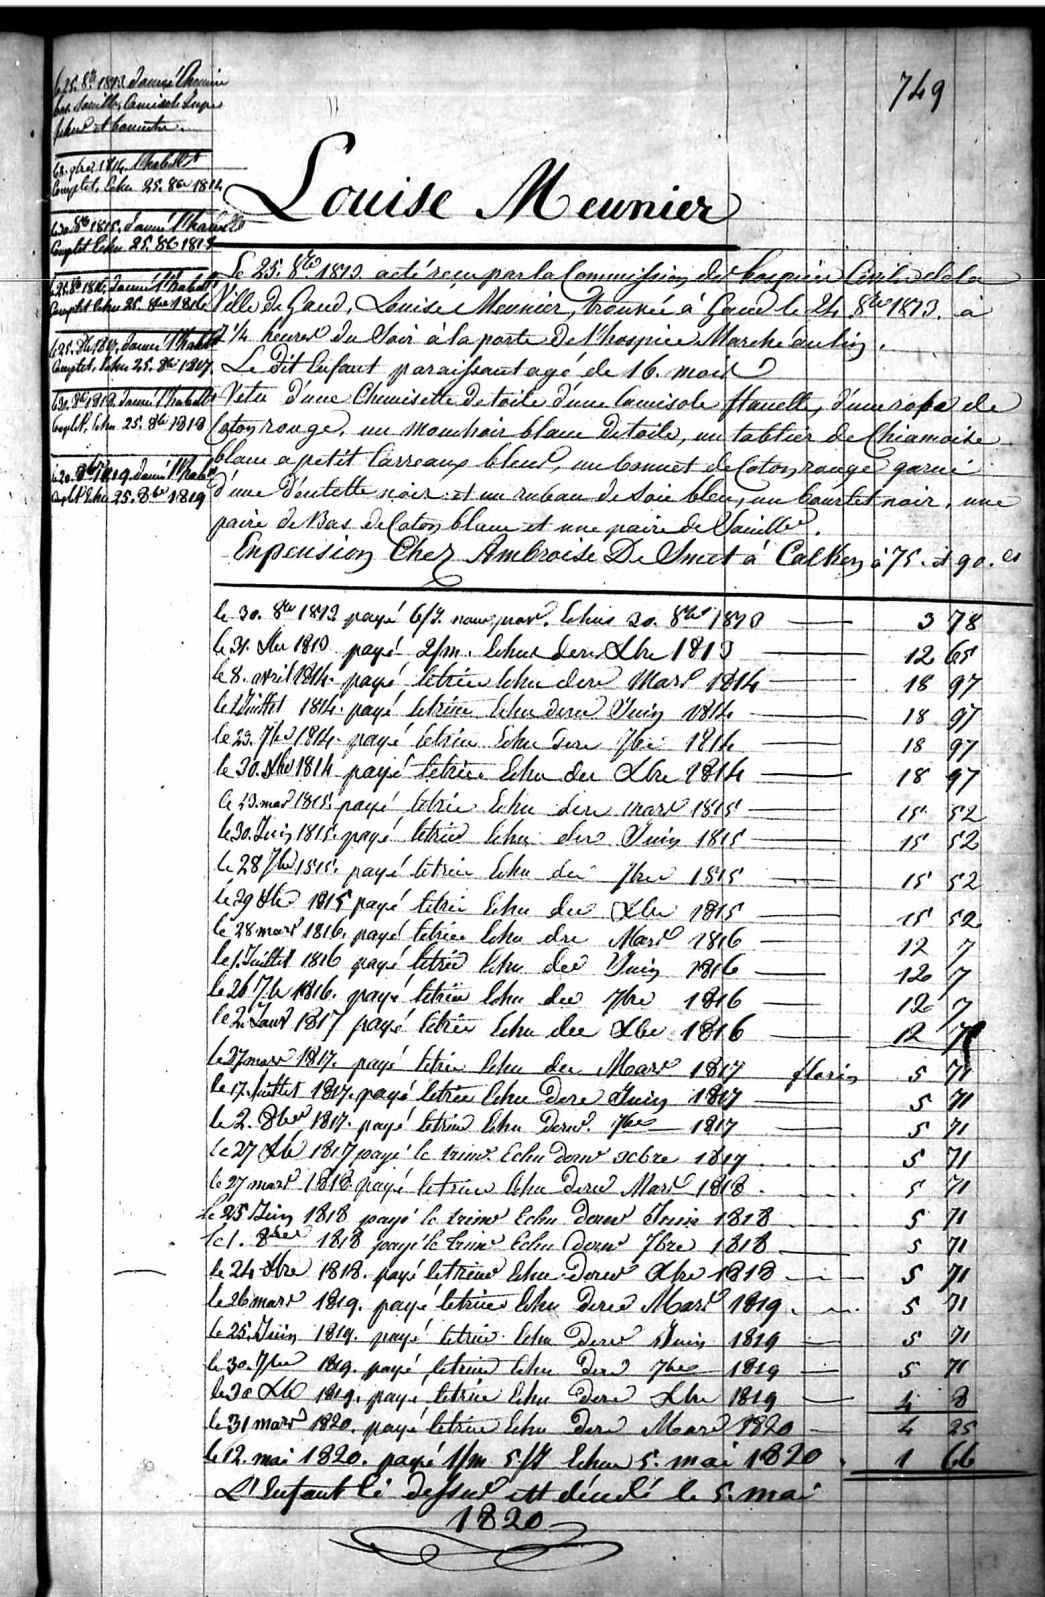 749
le 25. 8bre 1813. donné 1 Chemise
complet. Echu 25. 8bre 1814
complet Echu 25. 8bre 1815
complet Echu 25. 8bre 1816
complet. Echu 25. 8bre 1817.
complet. Echu 25. 8bre 1818
complet Echu 25. 8bre 1819
Louise Meunier
Le 25. 8bre 1813. acté reçu par la Commission des hospices Civils de la
Ville de Gand, Louise Meunier, trouvée à Gand le 24 8bre 1813. à
7 1/4 heures du Soir à la porte de l'hospice Marche au lin.
Le dit Enfant paraissant agé de 16. mois
Vetu d'une Chemisette de toile d'une Camisole flanelle, d'une robe de
Coton rouge, un mouchoir blanc de toile, un tablier de Chiamoise
blanc a petit Carreaux bleus, un bonnet de Coton rouge garni
d'une dentelle noir et un ruban de Soie bleu, un bourlet noir, une
paire de Bas de Coton blanc et une paire de Souillers.
En pension Chez Ambroise De Smet à Calken à 75. et 90. cs
le 30. 8bre 1813 payé 6/7. nouv: Echus 30. 8bre 1813 3 78
le 31. Xbre 1813 payé 2/m. Echus dere Xbre 1813 12 65
le 8. avril 1814. payé letrim Echu dere Mars 1814 18 97
le 2 Juillet 1814. payé letrim Echu dere Juin 1814 18 97
le 29. 7bre 1814. payé letrim Echu dere 7bre 1814 18 97
le 30. Xbre 1814 payé letrim Echu der Xbre 1814 18 97
le 23. mars 1815. payé letrim Echu dere mars 1815 15 52
le 30. Juin 1815. payé letrim Echu der Juin 1815 15 52
le 28 7bre 1815. payé letrim Echu der 7bre 1815 15 52
le 29 Xbre 1815 payé letrim Echu der Xbre 1815 15 52
le 28 mars 1816. payé letrim Echu der Mars 1816 12 7
le 1. Juillet 1816 payé letrim Echu der Juin 1816 12 7
le 26 7bre 1816. payé letrim Echu der 7bre 1816 12 7
le 2 Janv 1817 payé letrim Echu der Xbre 1816 12 7
le 27 mars 1817. payé letrim Echu der Mars 1817 florin 5 71
le 17. Juillet 1817. payé letrim Echu dere Juin 1817 5 71
le 2. 8bre 1817. payé letrim Echu dern. 7bre 1817 5 71
le 27 Xbre 1817 payé le trimr Echu dernr xcbre 1817 5 71
le 27 mars 1818. payé letrim Echu dere Mars 1818 5 71
le 25 Juin 1818 payé le trimr Echu dernr Juin 1818 5 71
le 1. 8bre 1818 payé le trimr Echu dernr 7bre 1818 5 71
le 24 Xbre 1818. payé letrimr Echu dernr Xbre 1818 5 71
le 26 mars 1819. payé letrim Echu dere Mars 1819 5 71
le 25. Juin 1819. payé letrim Echu dere Juin 1819 5 71
le 30. 7bre 1819. payé, letrim Echu dere 7bre 1819 5 71
le 30 Xbre 1819. payé letrim Echu dere Xbre 1819 4 8
le 31 mars 1820. payé letrim Echu dere Mars 1820 4 25
le 12. mai 1820. payé 1/m 5/7 Echus 5. mai 1820 1 66
L'Enfant Ci dessus est décédé le 5. mai
1820